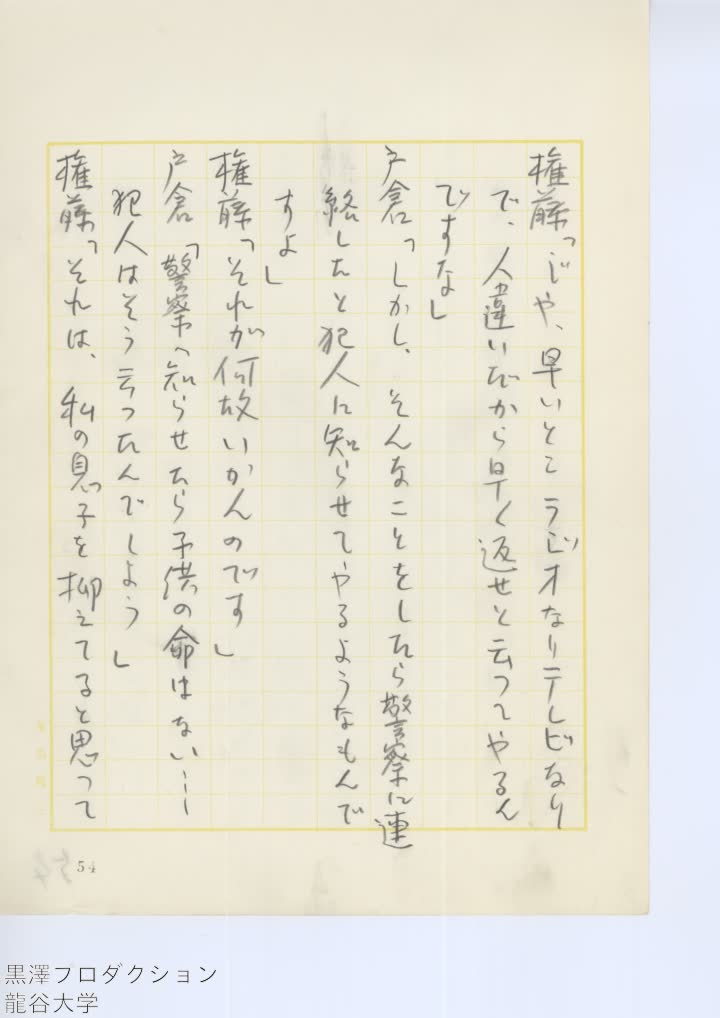 権藤「じや、早いとこラジオなりテレビなり
で、人違いだから早く返せと云つてやるん
ですな」
戸倉「しかし、そんなことをしたら警察に連
絡したと犯人に知らせてやるようなもんで
すよ」
権藤「それが何故いかんのです」
戸倉「警察へ知らせたら子供の命はない……
犯人はそう云つたんでしよう」
権藤「それは、私の息子を抑えてると思つて
54
黒澤プロダクション
龍谷大学